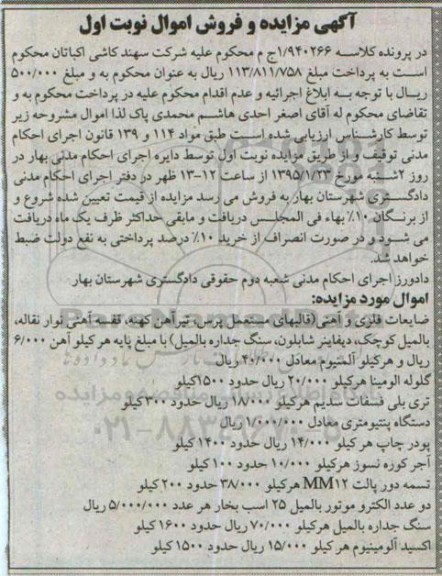 آگهی مزایده و فروش اموال نوبت اول
در پرونده کلاسه ۱/۹۴۰۲۶۶ج م محکوم علیه شرکت سهند کاشی اکباتان محکوم
است به پرداخت مبلغ ۱۱۳/۸۱۱/۷۵۸ ریال به عنوان محکوم به و مبلغ ۵۰۰/۰۰۰
ریال با توجه به ابلاغ اجرائیه و عدم اقدام محکوم علیه در پرداخت محکوم به و
تقاضای محکوم له آقای اصغر احدی هاشم محمدی پاک لذا اموال مشروحه زیر
توسط کارشناس ارزیابی شده است طبق مواد ۱۱۴ و ۱۳۹ قانون اجرای احکام
مدنی توقیف و از طریق مزایده نوبت اول توسط دایره اجرای احکام مدنی بهار در
روز ۲شنبه مورخ ۱۳۹۵/۱/۲۳ از ساعت ۱۲-۱۳ ظهر در دفتر اجرای احکام مدنی
دادگستری شهرستان بهار به فروش می رسد مزایده از قیمت تعیین شده شروع و
از برندگان ۱۰٪ بهاء فی المجلس دریافت و مابقی حداکثر ظرف یک ماه دریافت
می شود و در صورت انصراف از خرید ۱۰٪ درصد پرداختی به نفع دولت ضبط
خواهد شد.
دادورز اجرای احکام مدنی شعبه دوم حقوقی دادگستری شهرستان بهار
اموال مورد مزایده:
ضایعات فلزی و آهنی (قالبهای مستعمل پرس، تیرآهن کهنه، قفسه آهنی نوار نقاله،
بالمیل کوچک، دیفاینر شابلون، سنگ جداره بالمیل) با مبلغ پایه هر کیلو آهن ۶/۰۰۰
ریال و هرکیلو آلمنیوم معادل ۴۰/۰۰۰ ریال
گلوله الومینا هرکیلو ۲۰/۰۰۰ ریال حدود ۱۵۰۰کیلو
تری پلی فسفات سدیم هرکیلو ۱۸۰۰۰ ریال حدود ۳۰۰ کیلو
دستگاه پنتیومتری معادل ۱/۰۰۰/۰۰۰ ریال
پودر چاپ هرکیلو ۱۴/۰۰۰ ریال حدود ۱۴۰۰ کیلو
آجر کوره نسوز هرکیلو ۱۰/۰۰۰ حدود ۱۰۰ کیلو
تسمه دور پالت MM۱۲ هرکیلو ۳۸/۰۰۰ حدود ۲۰۰ کیلو
دو عدد الکترو موتور بالمیل ۲۵ اسب بخار هر عدد ۵/۰۰۰/۰۰۰ ریال
سنگ جداره بالمیل هرکیلو ۷۰/۰۰۰ ریال حدود ۱۶۰۰ کیلو
اکسید آلومینیوم هر کیلو ۱۵/۰۰۰ ریال حدود ۱۵۰۰ کیلو